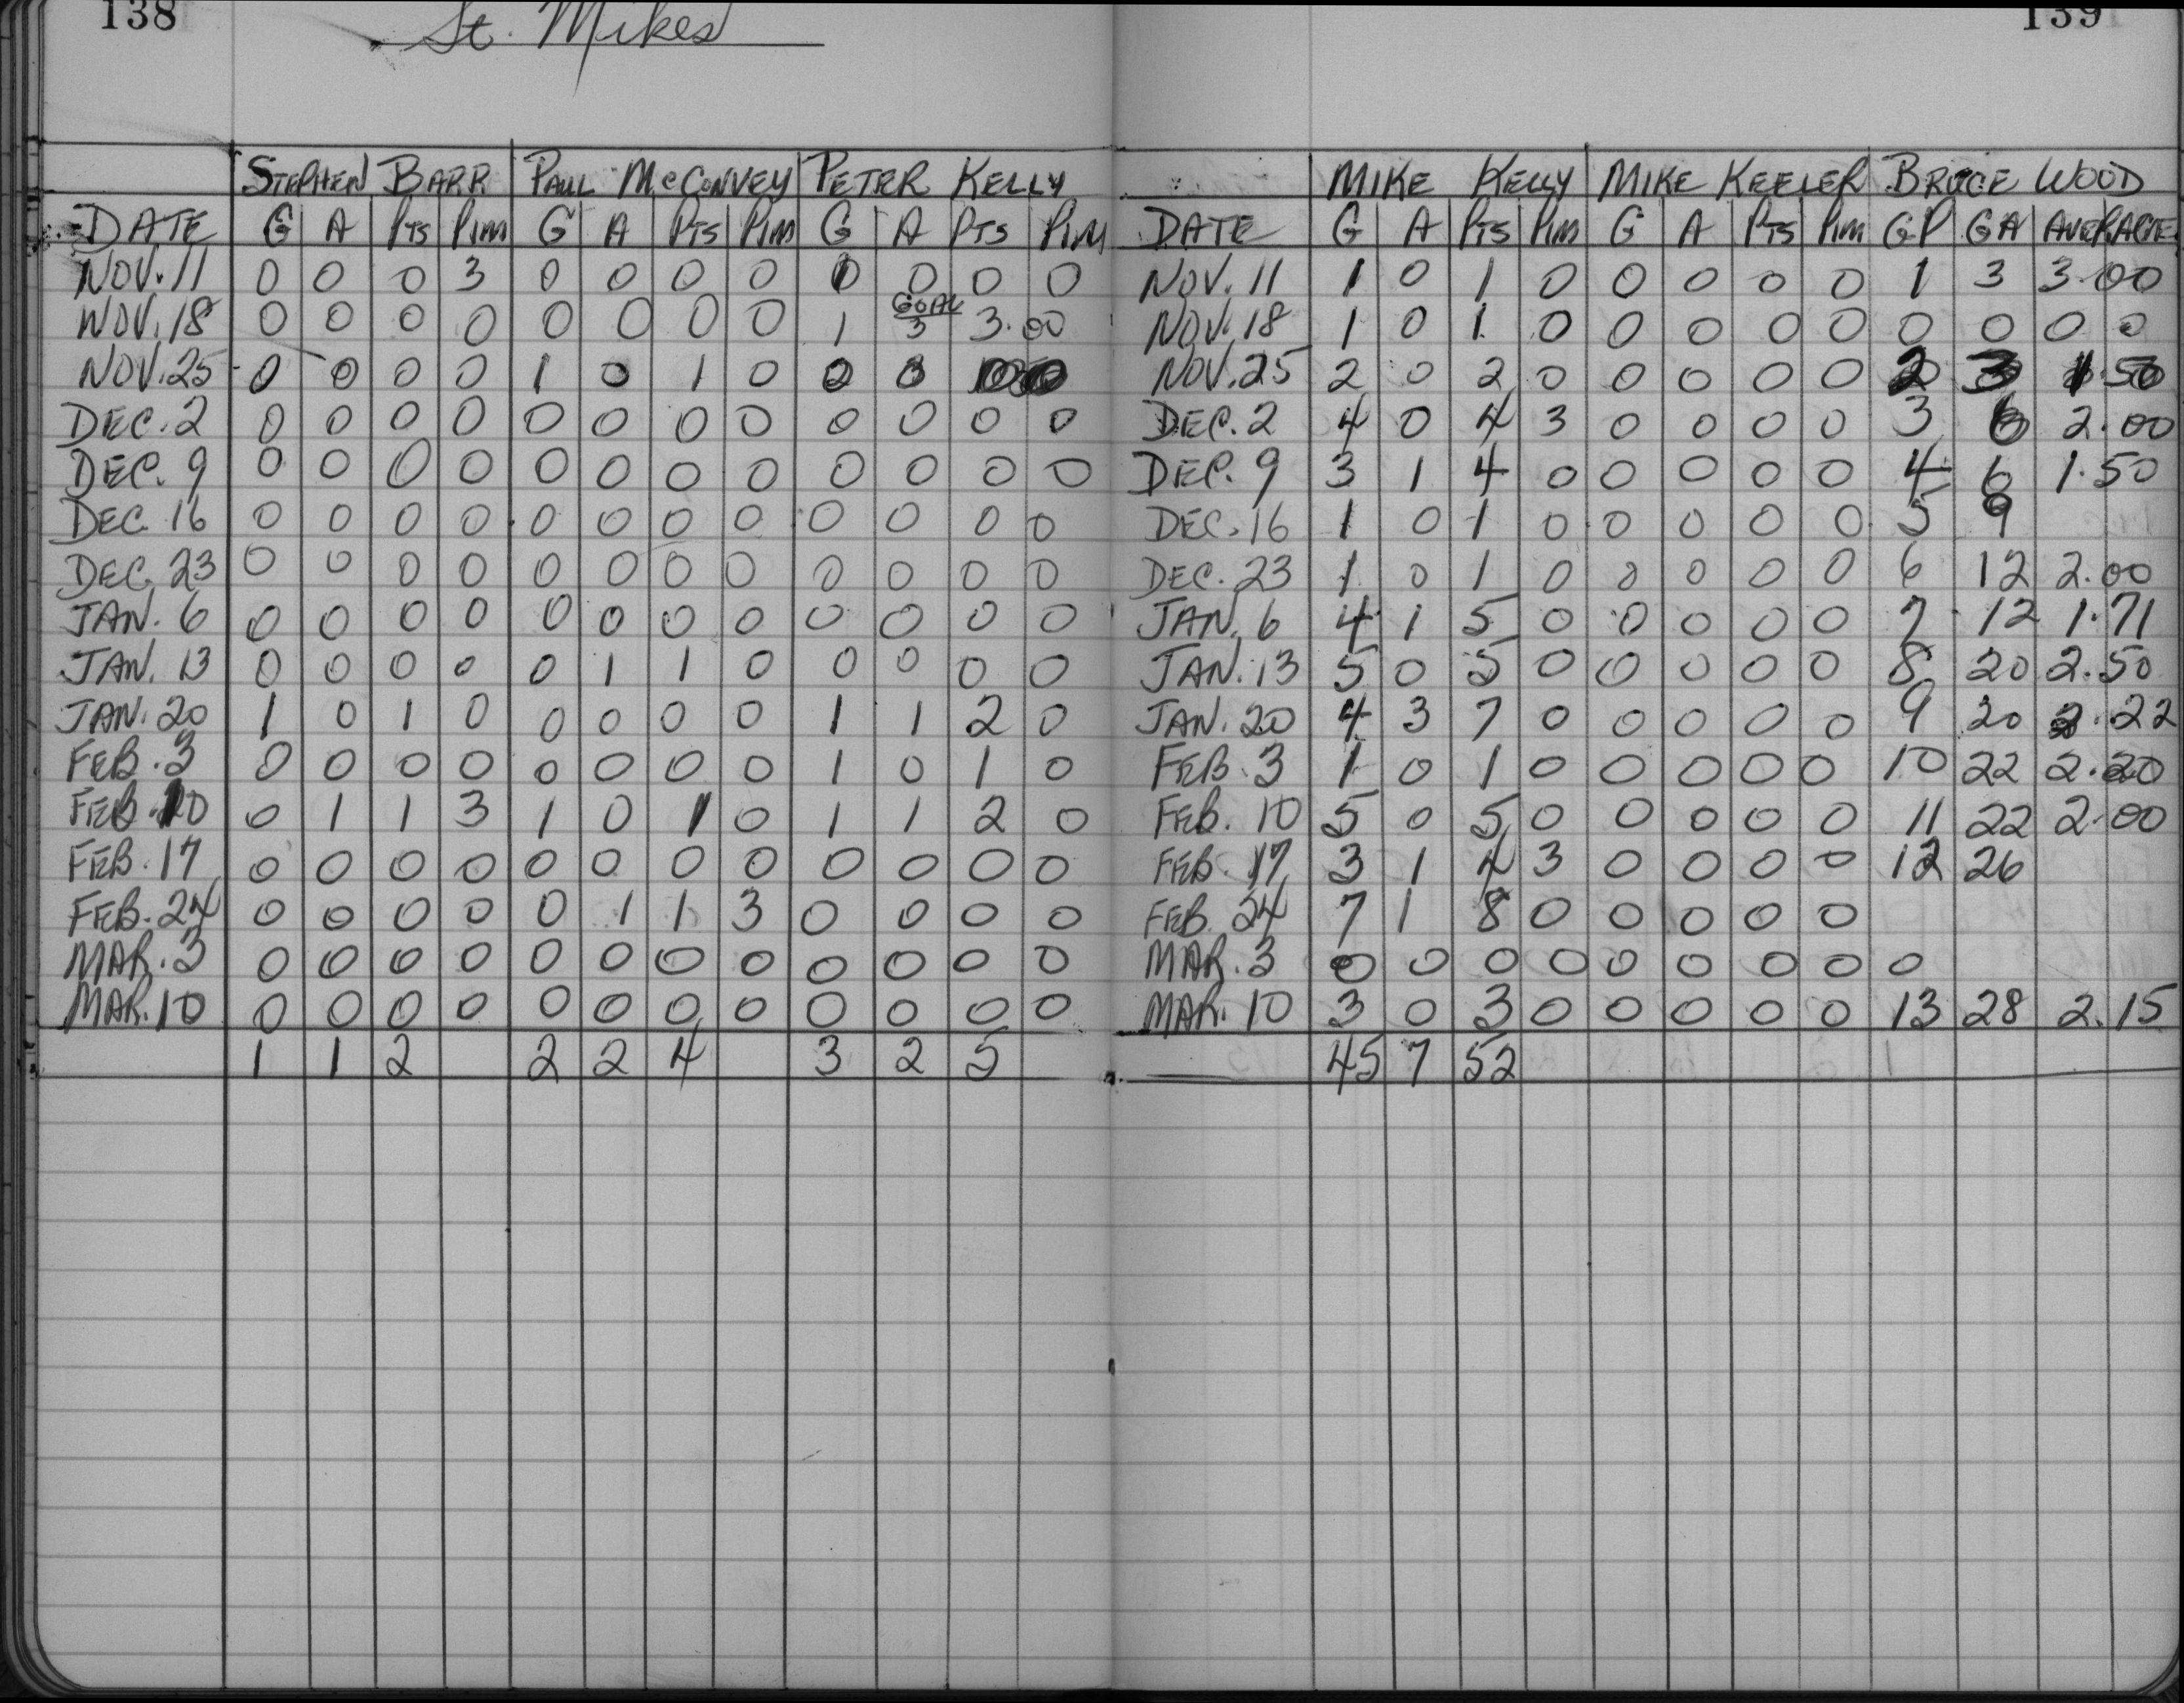 138
St. Mikes
STEPHEN BARR PAUL McCONVEY PETER KELLY
DATE G A PTS PIM G A PTS PIM G A PTS PIM
NOV. 11 0 0 0 3 0 0 0 0 0 0 0
GOAL
NOV. 18 0 0 0 0 0 0 0 0 1 3 3.00
NOV. 25 0 0 0 0 1 0 1 0
DEC. 2 0 0 0 0 0 0 0 0 0 0 0 0
DEC. 9 0 0 0 0 0 0 0 0 0 0 0 0
DEC 16 0 0 0 0 0 0 0 0 0 0 0 0
DEC. 23 0 0 0 0 0 0 0 0 0 0 0 0
JAN. 6 0 0 0 0 0 0 0 0 0 0 0 0
JAN. 13 0 0 0 0 0 1 1 0 0 0 0 0
JAN. 20 1 0 1 0 0 0 0 0 1 1 2 0
FEB. 3 0 0 0 0 0 0 0 0 1 0 1 0
FEB. 10 0 1 1 3 1 0 1 0 1 1 2 0
FEB. 17 0 0 0 0 0 0 0 0 0 0 0 0
FEB. 24 0 0 0 0 0 1 1 3 0 0 0 0
MAR. 3 0 0 0 0 0 0 0 0 0 0 0 0
MAR. 10 0 0 0 0 0 0 0 0 0 0 0 0
1 1 2 2 2 4 3 2 5
139
MIKE KELLY MIKE KEELER BRUCE WOOD
DATE G A PTS PIM G A PTS PIM GP GA AVERAGE
NOV. 11 1 0 1 0 0 0 0 0 1 3 3.00
NOV. 18 1 0 1 0 0 0 0 0 0 0 0 0
NOV. 25 2 0 2 0 0 0 0 0 2 3 1.50
DEC. 2 4 0 4 3 0 0 0 0 3 6 2.00
DEC. 9 3 1 4 0 0 0 0 0 4 6 1.50
DEC. 16 1 0 1 0 0 0 0 0 5 9
DEC. 23 1 0 1 0 0 0 0 0 6 12 2.00
JAN. 6 4 1 5 0 0 0 0 0 7 12 1.71
JAN. 13 5 0 5 0 0 0 0 0 8 20 2.50
JAN. 20 4 3 7 0 0 0 0 0 9 20 2.22
FEB. 3 1 0 1 0 0 0 0 0 10 22 2.20
FEB. 10 5 0 5 0 0 0 0 0 11 22 2.00
FEB. 17 3 1 4 3 0 0 0 0 12 26
FEB. 24 7 1 8 0 0 0 0 0
MAR. 3 0 0 0 0 0 0 0 0 0
MAR. 10 3 0 3 0 0 0 0 0 13 28 2.15
45 7 52